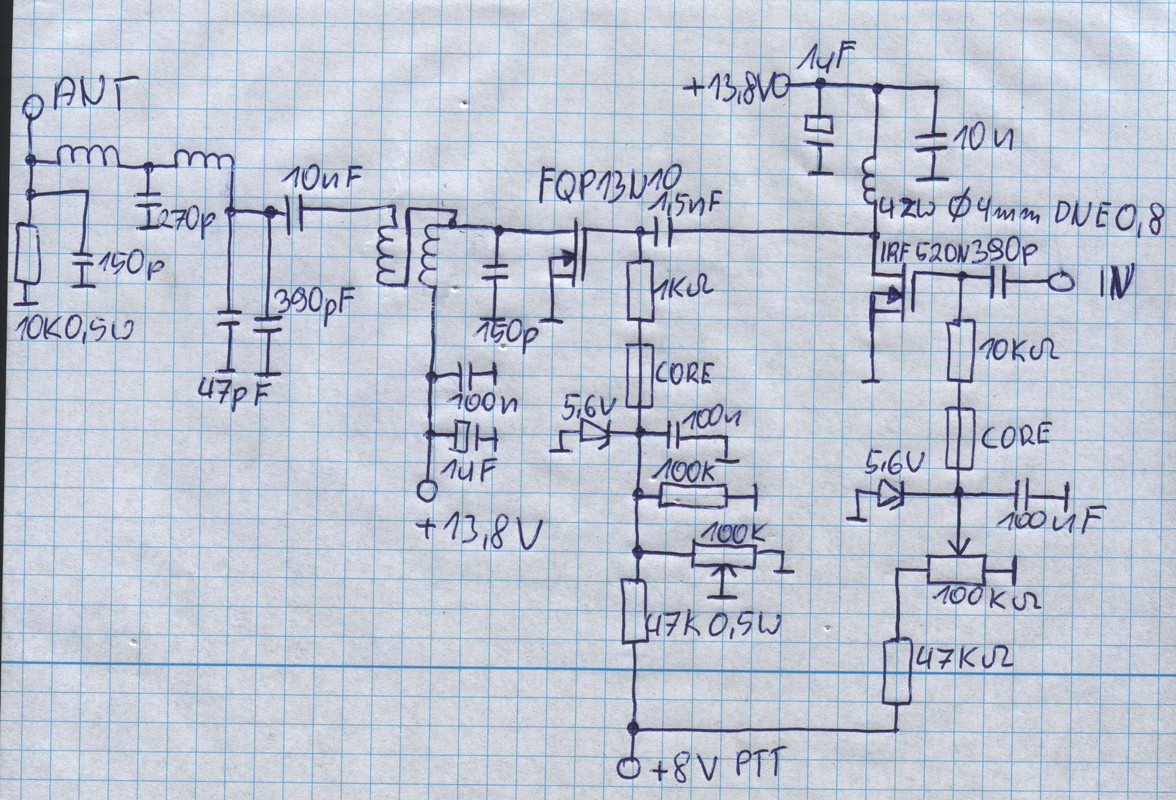 ANT
1uF
+13,8V
10n
10nF
FQP13N10
1,5nF
4ZW Ø4mm DNE0,8
270p
150p
IRF520N
390p
IN
10K0,5W
390pF
47pF
150p
1KΩ
10KΩ
CORE
100n
5,6V
100n
CORE
1uF
100K
5,6V
+13,8V
100K
100nF
100KΩ
47K0,5W
47KΩ
+8V PTT